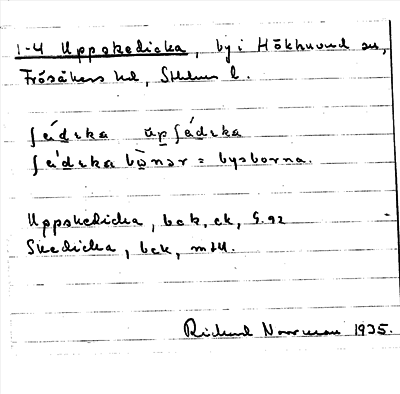 1-4 Uppskedicka, by i Hökhuvud sn,
Frösåkers hd, Sthlms l.
ʃédɩka ùpʃédɩka
ʃédɩka bònər = bysborna.
Uppskedicka, bek, ek, G.92
Skedicka, bek, mtl.
Rickard Norrman 1935.